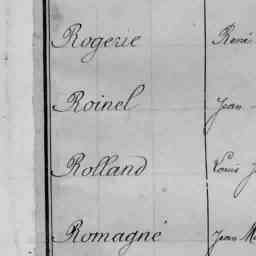 Rogerie René
Roinel Jean
Rolland Louis
Romagné Jean